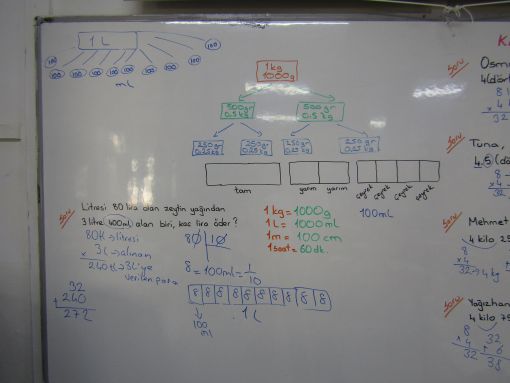 1 L
100 100 100 100 100 100 100 100 100 100
ml
1kg
1000g
500gr
0.5kg
500gr
0.5kg
250gr
0.25kg
250gr
0.25kg
250gr
0.25kg
250gr
0.25kg
tam
yarım yarım
çeyrek çeyrek çeyrek çeyrek
Soru
Litresi 80 lira olan zeytin yağından
3 litre 400ml alan biri, kaç lira öder?
80tl→litresi
x 3L→alınan
240tl→3L'ye
verilen para
32
+ 240
272
80 10
8 = 100ml = 1/10
8 8 8 8 8 8 8 8 8 8
100
ml
1L
1 kg = 1000g
1 L = 1000ml
1m = 100cm
1 saat = 60dk.
100ml
Soru
Osm
4(dör
8
x 4
32
Soru
Tuna,
4.5(d
8
x 4
32
Soru
Mehmet
4 kilo 25
8
x 4
32→4kg
Soru
Yağızhan
4 kilo 75
8
x 4
32
32
+ 6
38